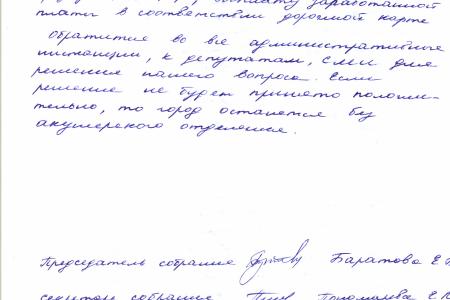 выплату заработанной
платы в соответствии дорожной карте
обратится во все административные
инстанции, к депутатам, СМИ для
решения нашего вопроса. Если
решение не будет принято положи-
тельно, то город останется без
акушерского отделения.
Председатель собрания Баратова Е.
секретарь собрания Пономарева Е.